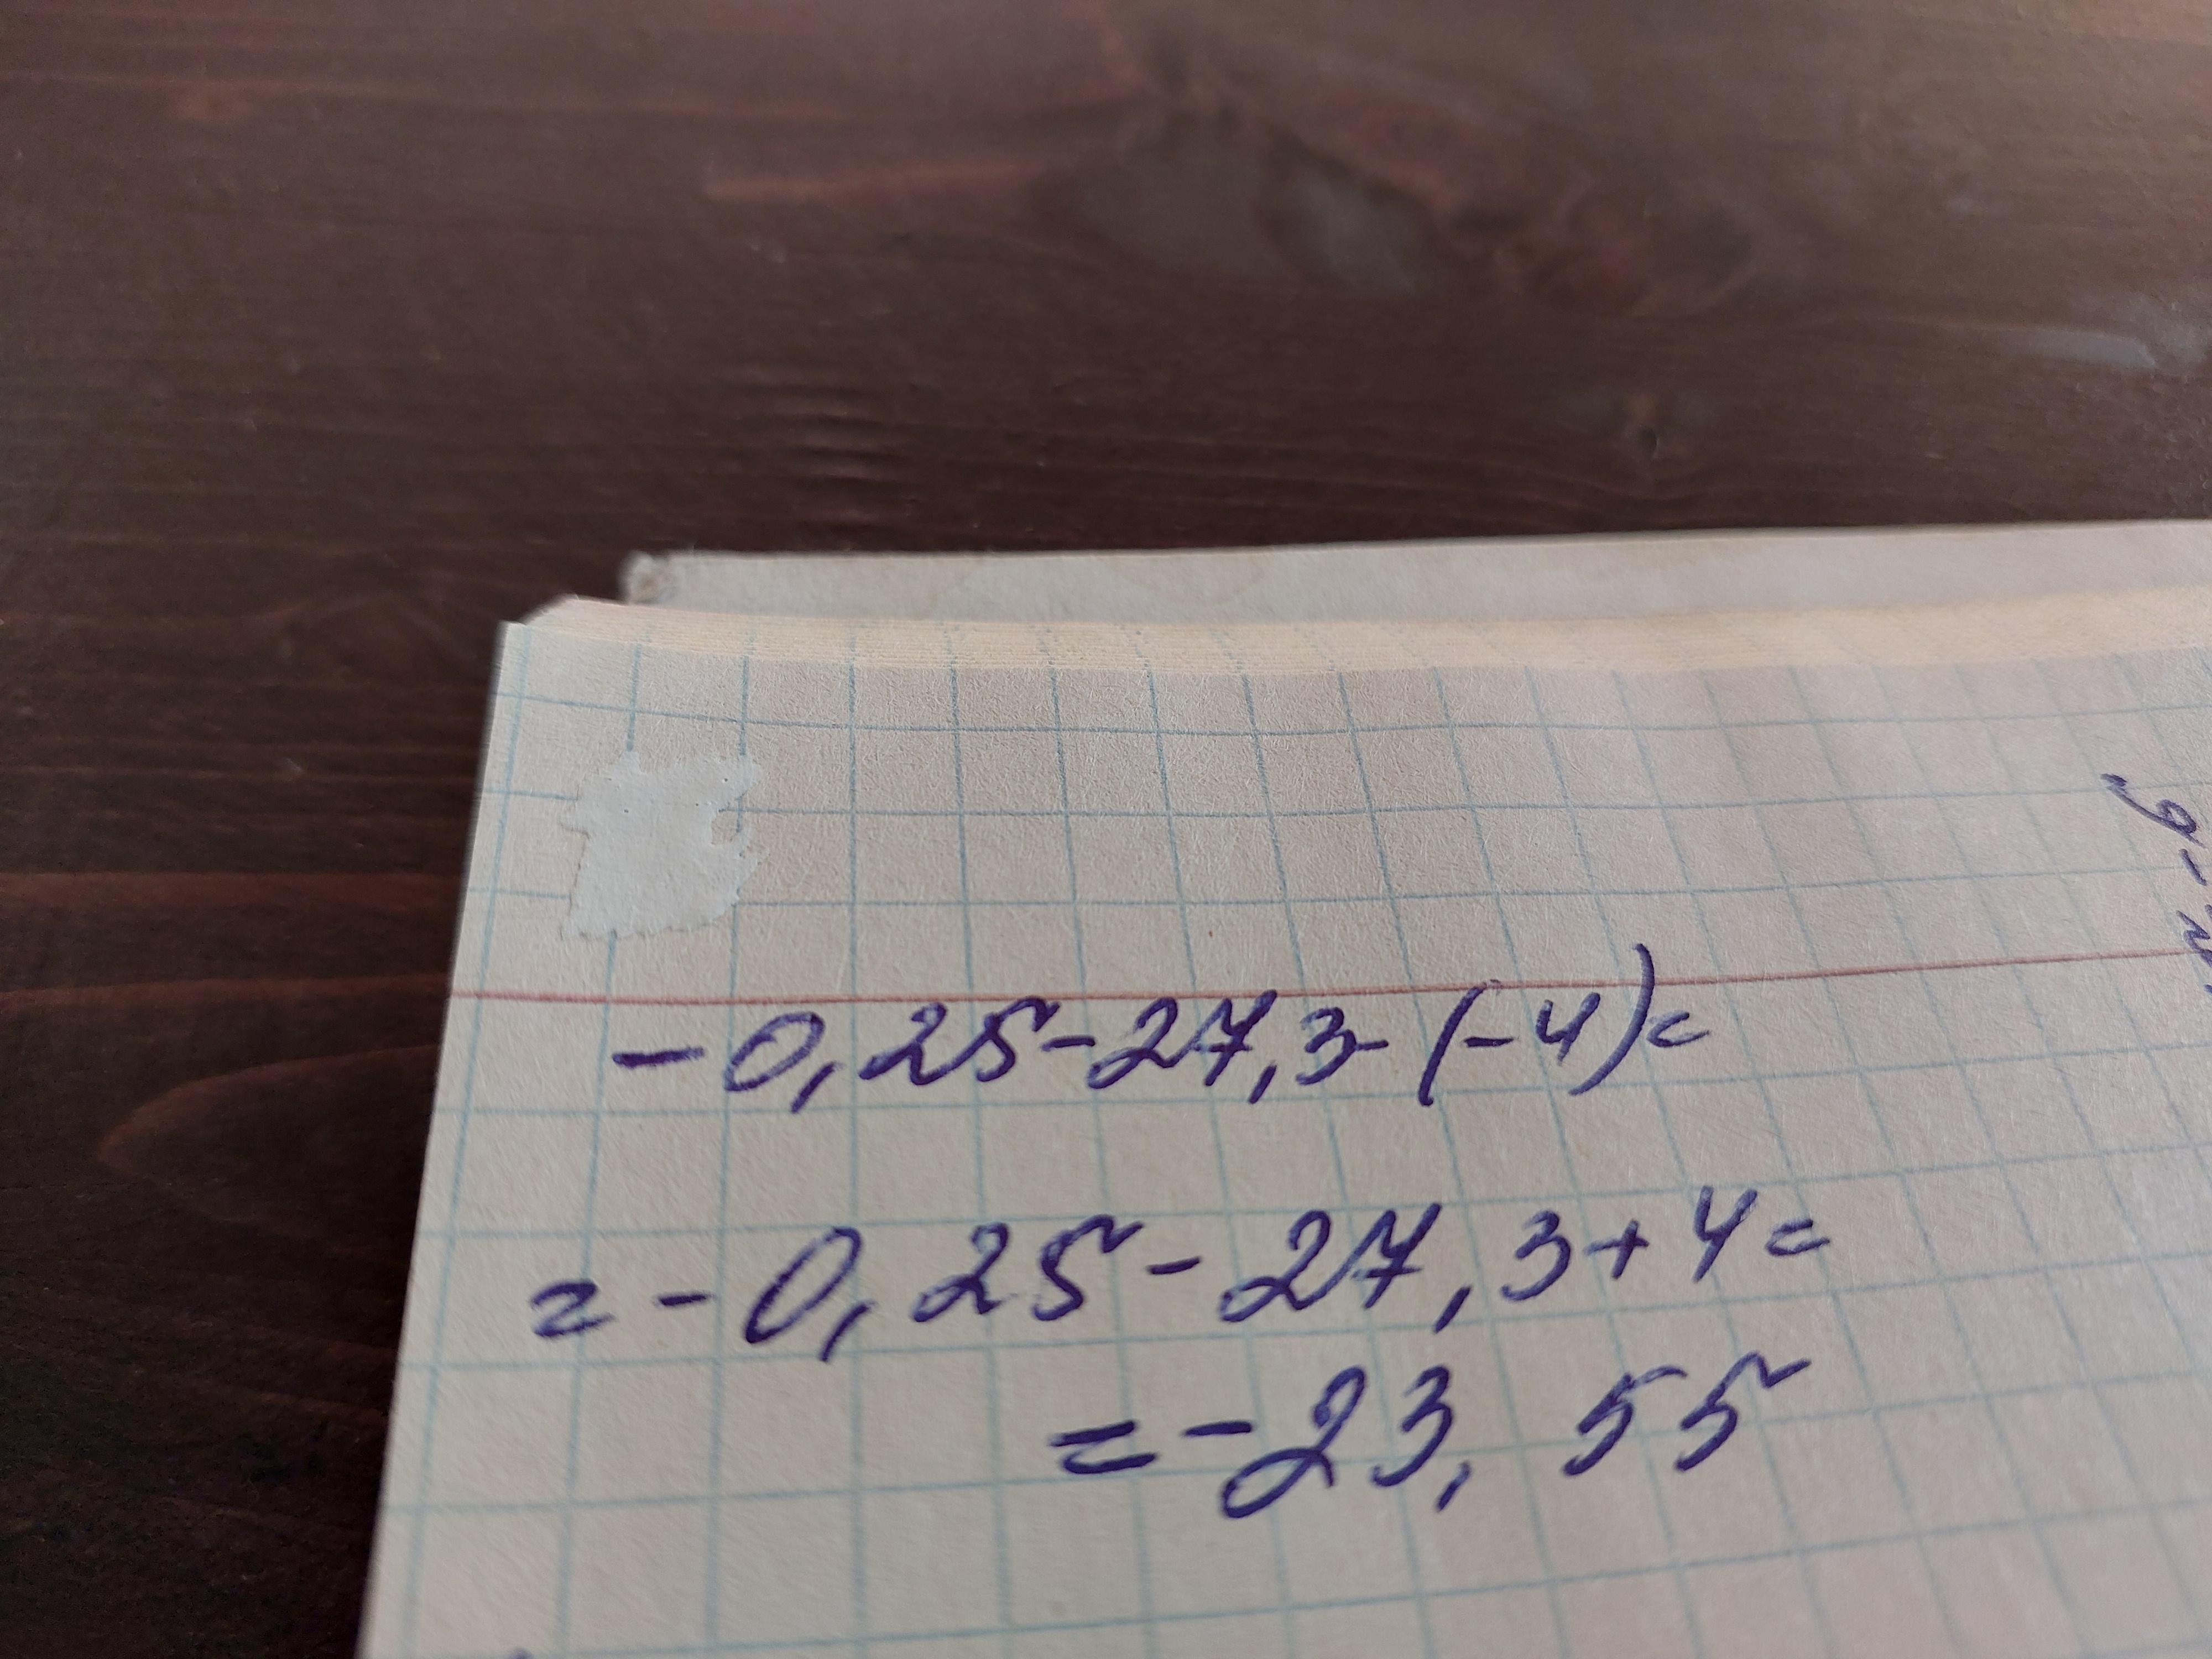 -0,25-27,3-(-4)=
=-0,25-27,3+4=
=-23,55